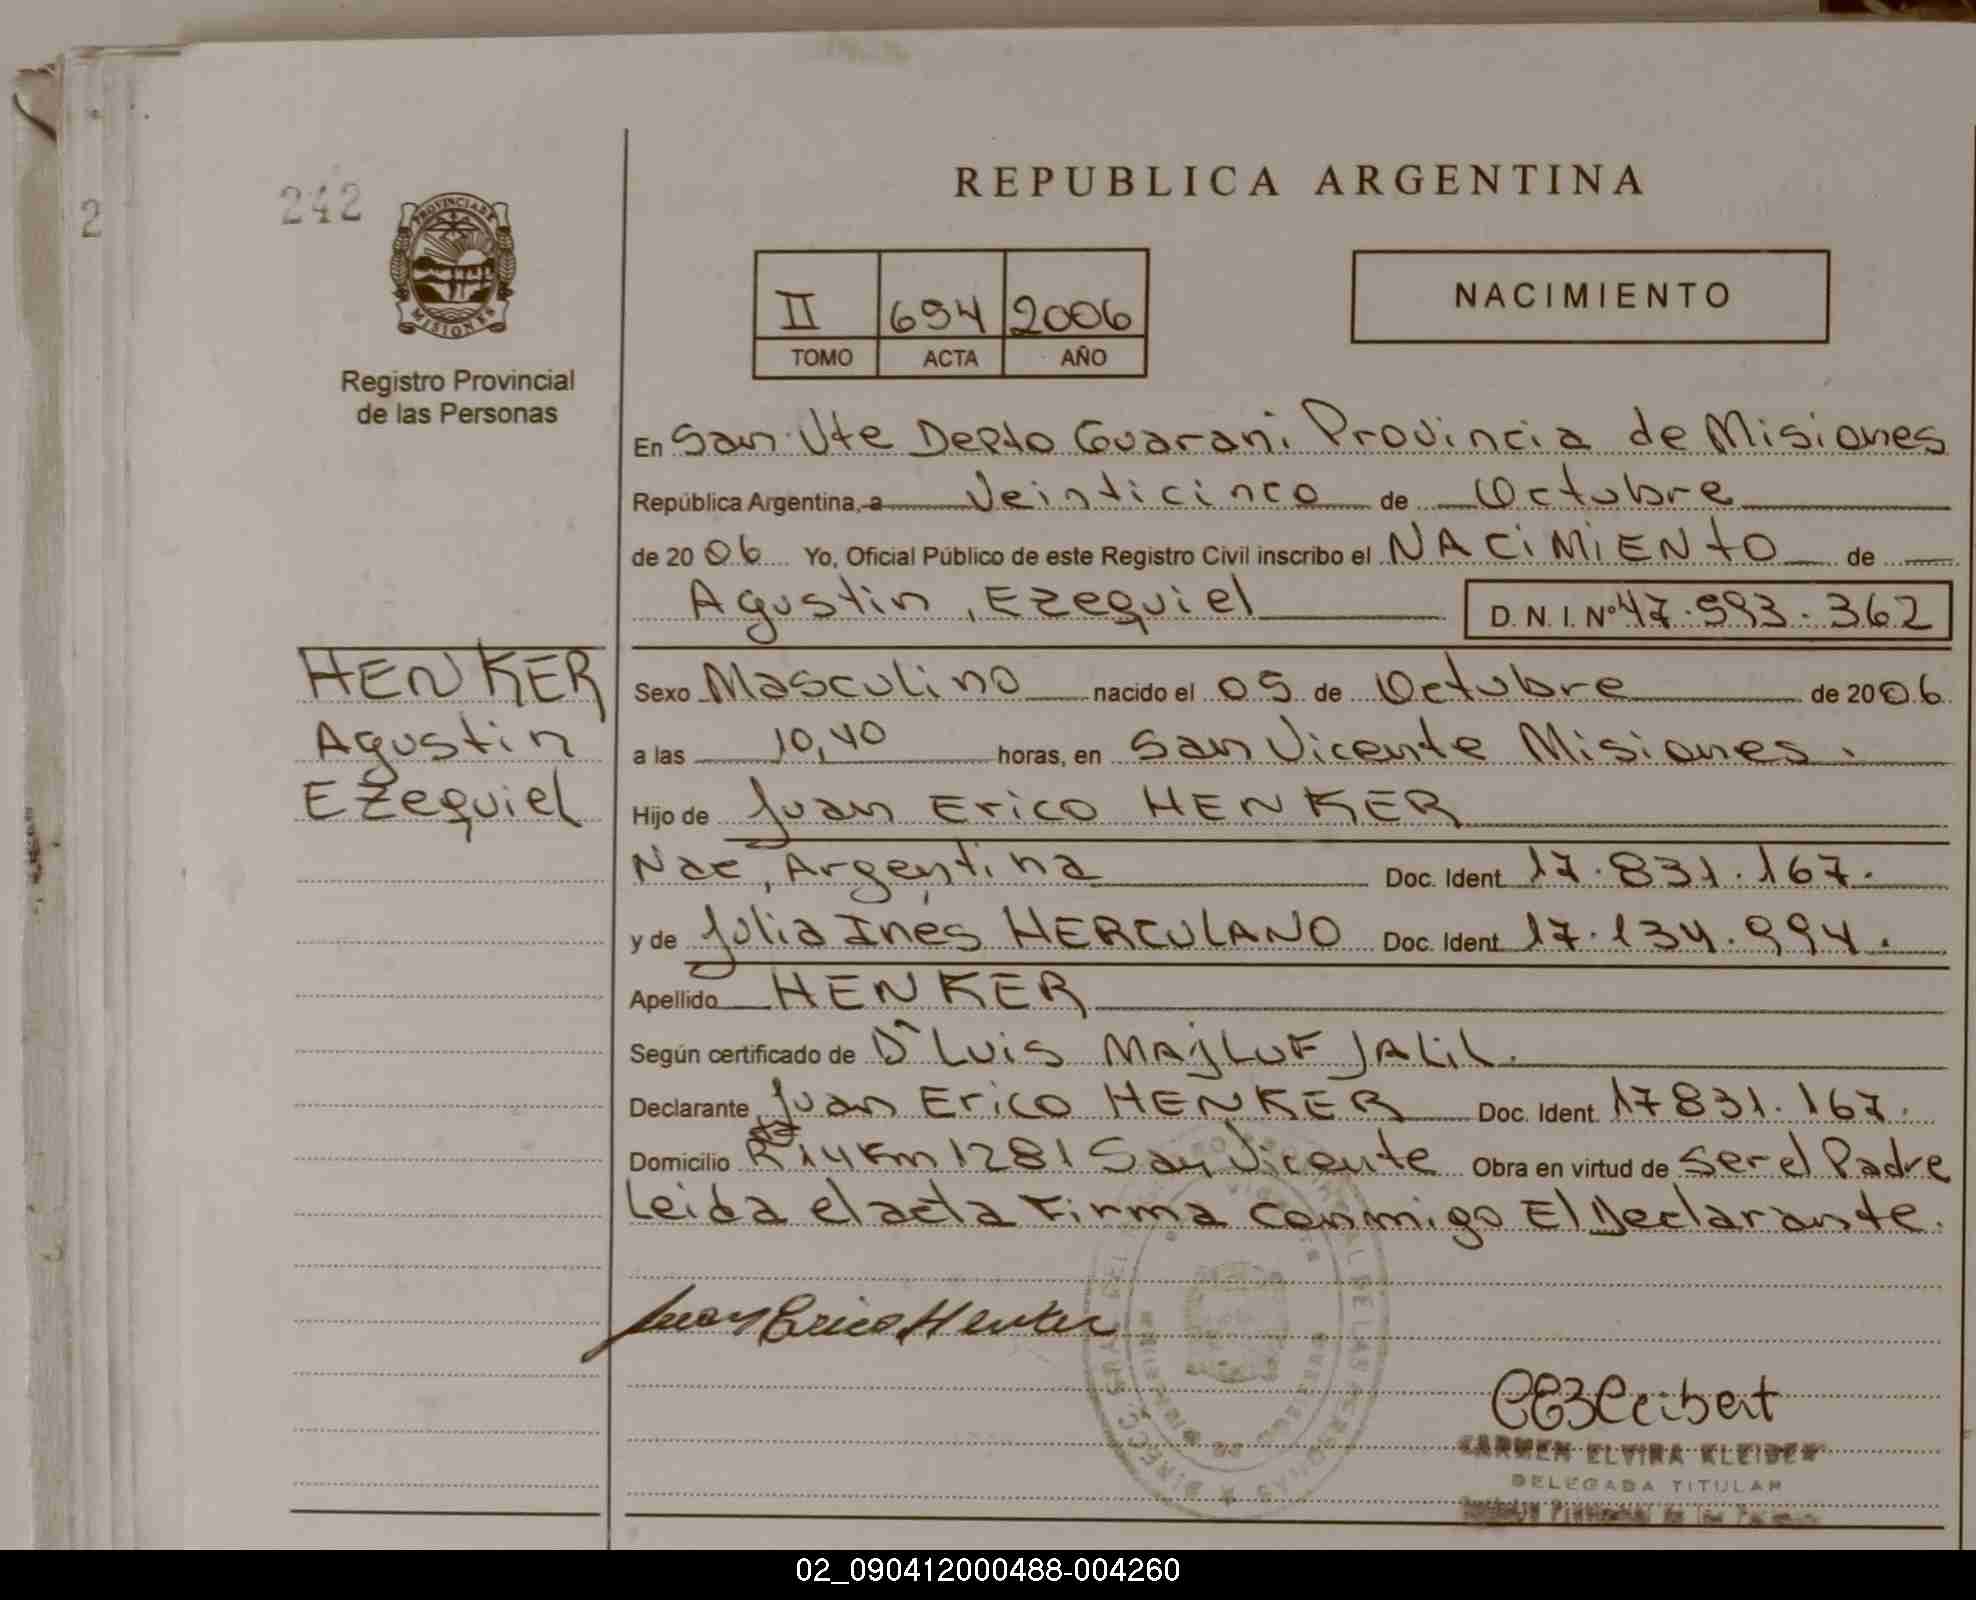 242
2
PROVINCIA DE
MISIONES
Registro Provincial
de las Personas
REPUBLICA ARGENTINA
II 694 2006
TOMO ACTA AÑO
NACIMIENTO
En San Vte Depto Guarani Provincia de Misiones
República Argentina, a Veinticinco de Octubre
de 2006 Yo, Oficial Público de este Registro Civil inscribo el NACIMIENTO de
Agustin, Ezequiel D. N. I. Nº 47.593.362
HENKER
Agustin
Ezequiel
Sexo Masculino nacido el 05 de Octubre de 2006
a las 10,40 horas, en San Vicente Misiones.
Hijo de Juan Erico HENKER
Nac, Argentina Doc. Ident 17.831.167.
y de Julia Inés HERCULANO Doc. Ident 17.134.994.
Apellido HENKER
Según certificado de Dr Luis MAJLUF JALIL.
Declarante, Juan Erico HENKER Doc. Ident. 17831.167.
Domicilio Rta 14 Km 1281 San Vicente Obra en virtud de ser el Padre
Leida el acta Firma conmigo El Declarante.
Juan Erico Henker
CARMEN ELVIRA
DELEGADA TITULAR
02_090412000488-004260